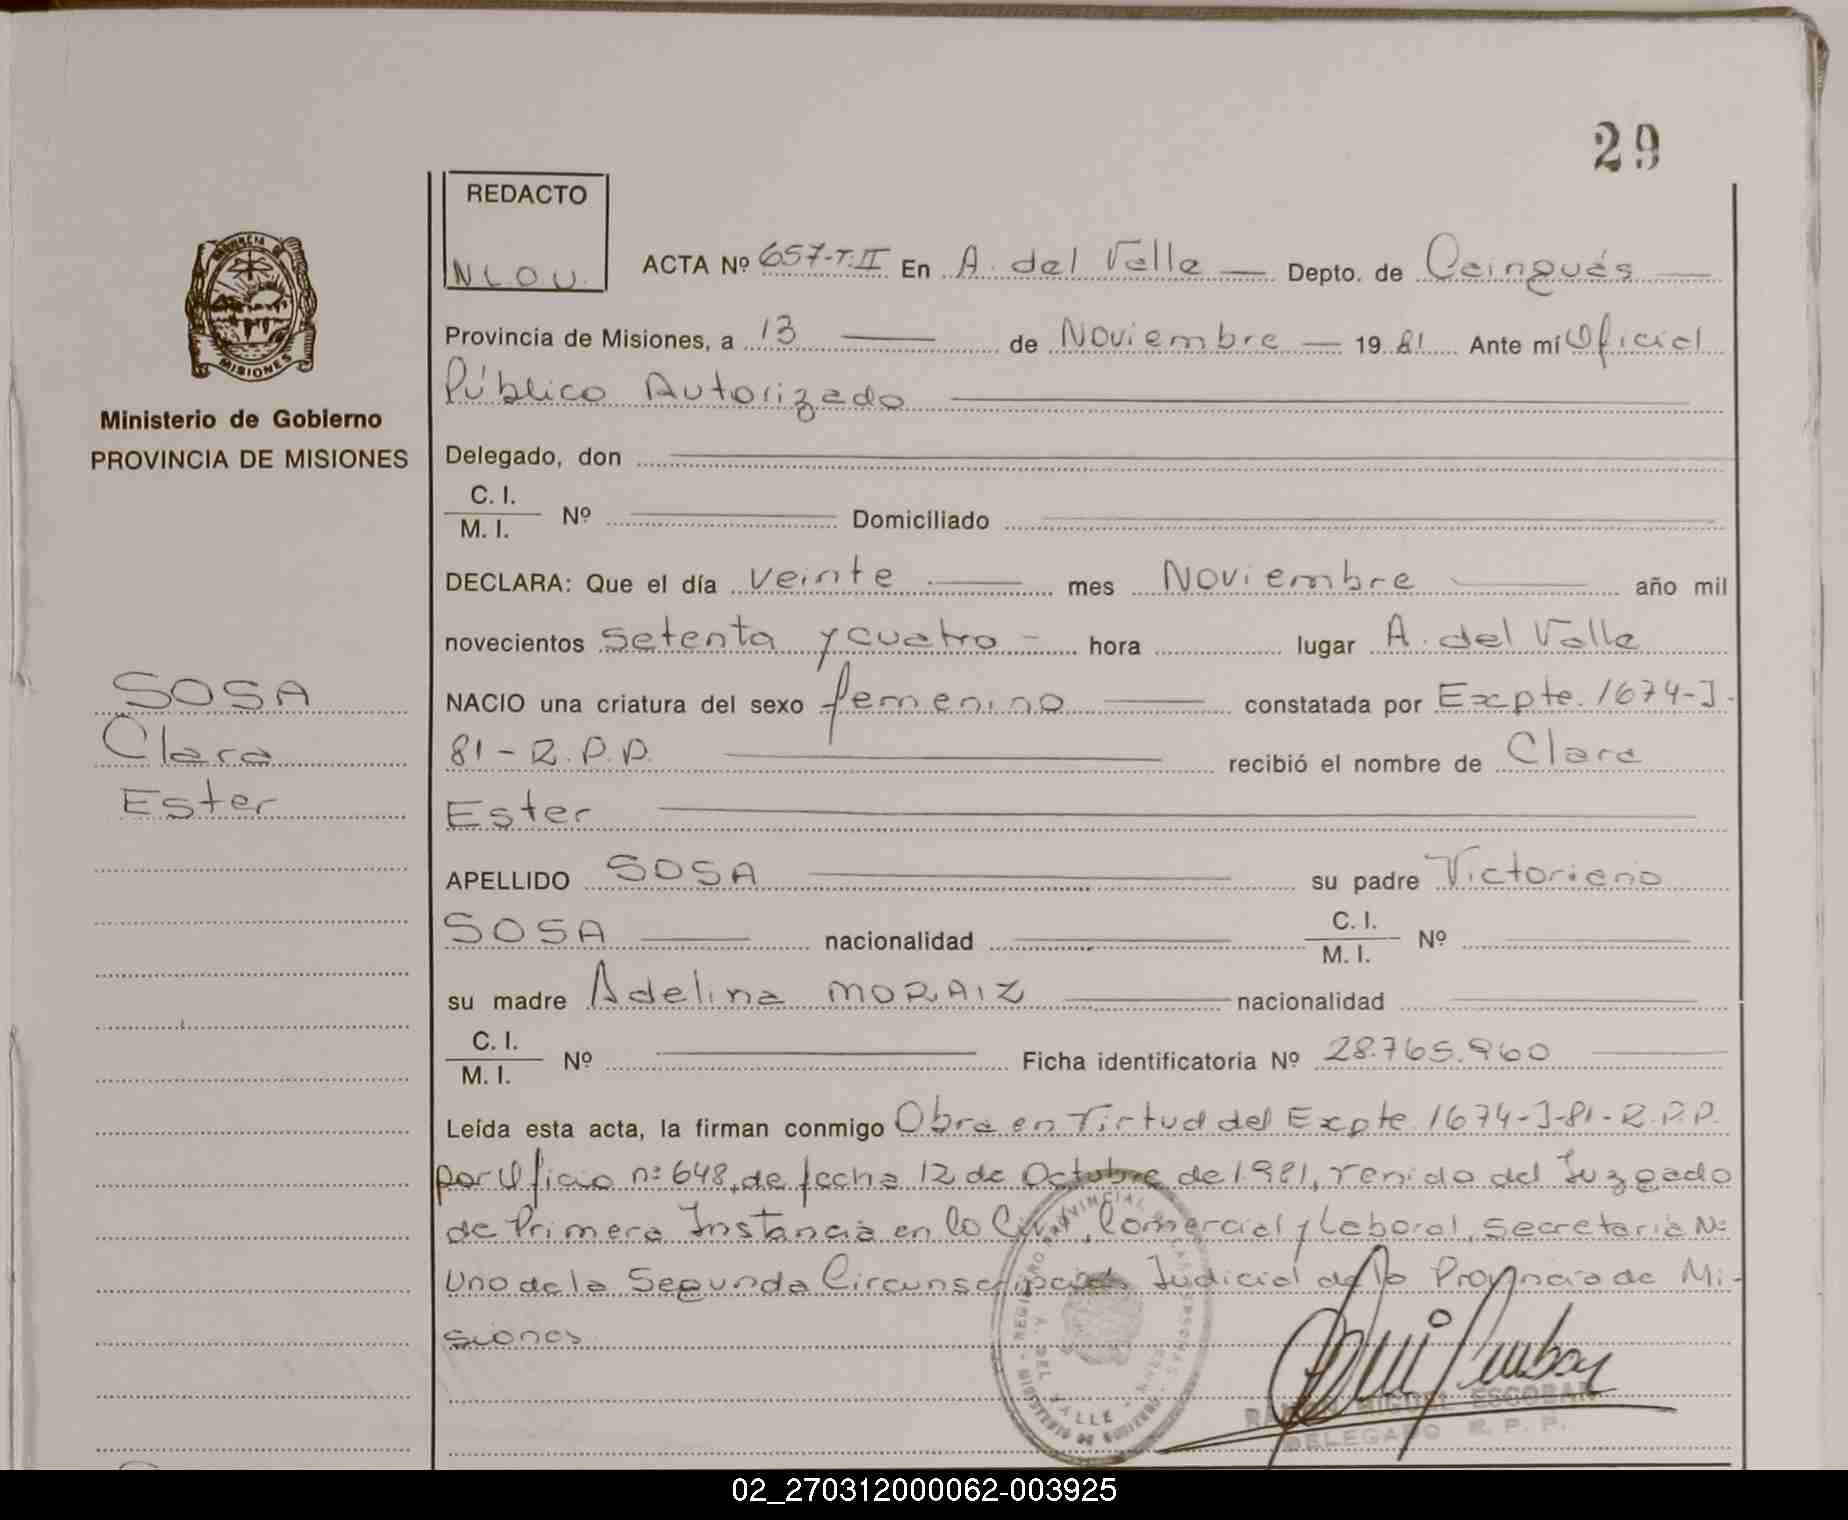 29
REDACTO
N.L.O.U.
PROVINCIA DE
MISIONES
ACTA Nº 657-T.II En A. del Valle — Depto. de Cainguás —
Provincia de Misiones, a 13 — de Noviembre — 1981 Ante mí Oficial
Público Autorizado
Ministerio de Gobierno
PROVINCIA DE MISIONES
Delegado, don
C. I.
M. I. Nº Domiciliado
DECLARA: Que el día veinte mes Noviembre año mil
novecientos setenta y cuatro - hora lugar A. del Valle
SOSA
Clara
Ester
NACIO una criatura del sexo femenino constatada por Expte. 1674-J-
81-R.P.P. recibió el nombre de Clara
Ester
APELLIDO SOSA su padre Victoriano
SOSA nacionalidad C. I. M. I. Nº
su madre Adelina MORAIZ nacionalidad
C. I.
M. I. Nº Ficha identificatoria Nº 28.765.960
Leída esta acta, la firman conmigo Obra en Virtud del Expte 1674-J-81-R.P.P.
por Oficio nº 648, de fecha 12 de Octubre de 1981, venido del Juzgado
de Primera Instancia en lo Civil, Comercial y Laboral, Secretaria Nº
Uno de la Segunda Circunscripción Judicial de la Provincia de Mi-
siones
REGISTRO PROVINCIAL DE LAS PERSONAS
A. DEL VALLE - MNES
MINISTERIO DE GOBIERNO
RAMON MIGUEL ESCOBAR
DELEGADO R. P. P.
02_270312000062-003925